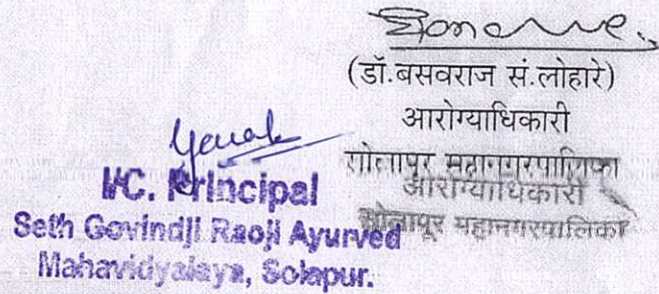 (डॉ.बसवराज सं.लोहारे)
आरोग्याधिकारी
सोलापूर महानगरपालिका
आरोग्याधिकारी
सोलापूर महानगरपालिका
I/C. Principal
Seth Govindji Raoji Ayurved
Mahavidyalaya, Solapur.